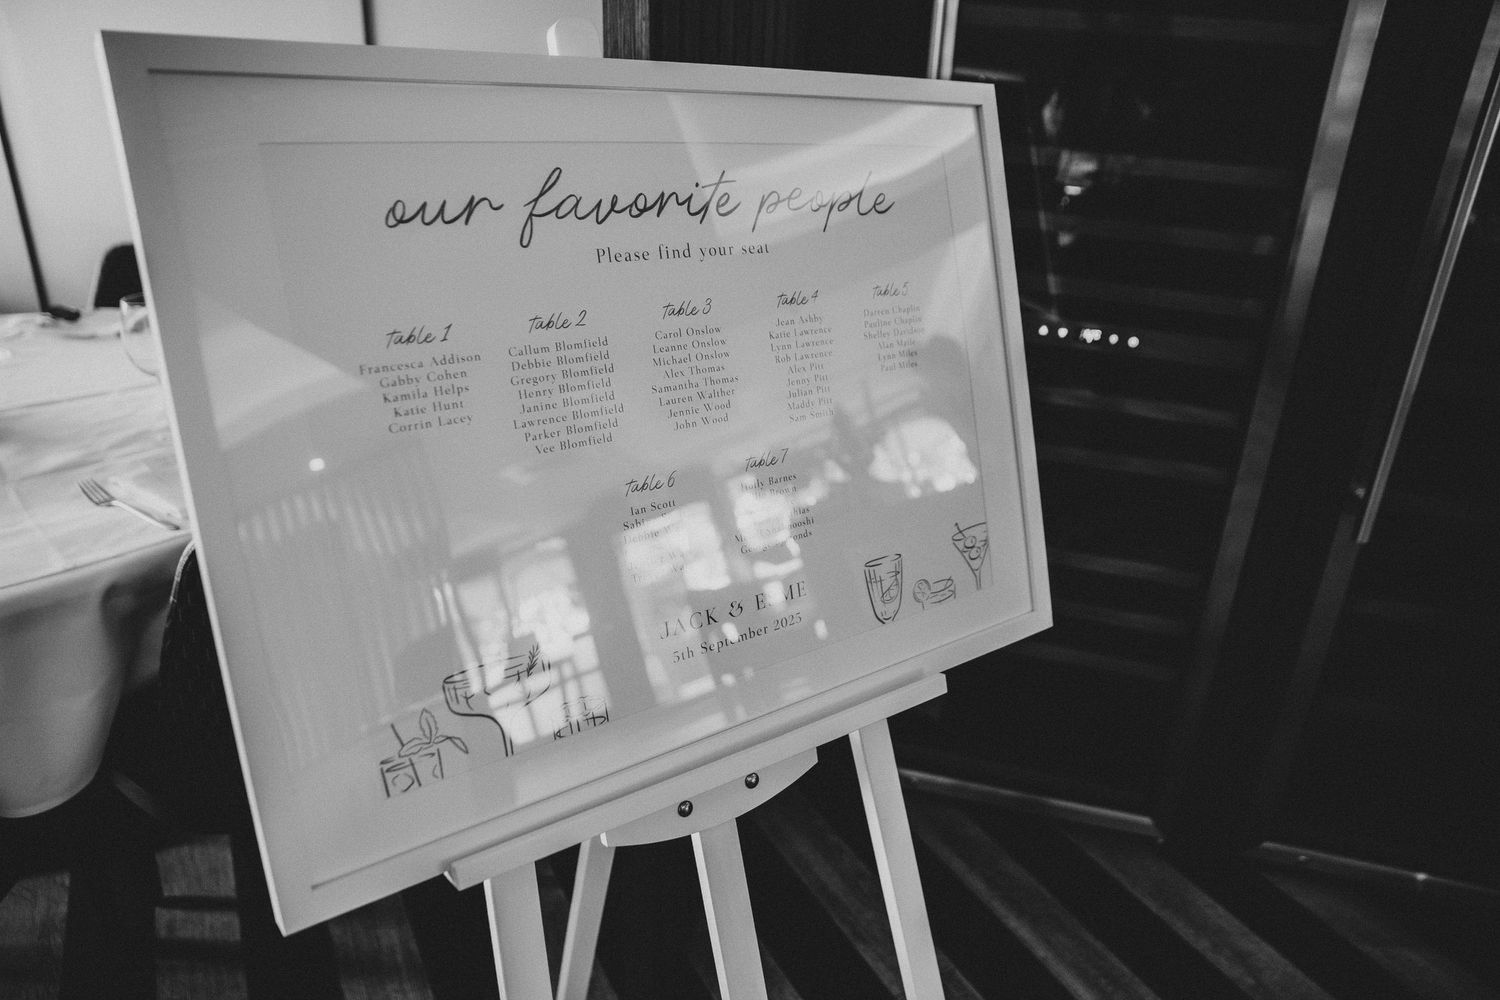 our favorite people
Please find your seat
table 1
Francesca Addison
Gabby Cohen
Kamila Helps
Katie Hunt
Corrin Lacey
table 2
Callum Blomfield
Debbie Blomfield
Gregory Blomfield
Henry Blomfield
Janine Blomfield
Lawrence Blomfield
Parker Blomfield
Vee Blomfield
table 3
Carol Onslow
Leanne Onslow
Michael Onslow
Alex Thomas
Samantha Thomas
Lauren Walther
Jennie Wood
John Wood
table 4
Jean Ashby
Katie Lawrence
Lynn Lawrence
Rob Lawrence
Alex Pitt
Jenny Pitt
Julian Pitt
Maddy Pitt
Sam Smith
table 5
Darren Chaplin
Pauline Chaplin
Shelley Davidson
Alan Maile
Lynn Miles
Paul Miles
table 6
Ian Scott
Debbie
table 7
Holly Barnes
Brown
JACK & ESME
5th September 2025